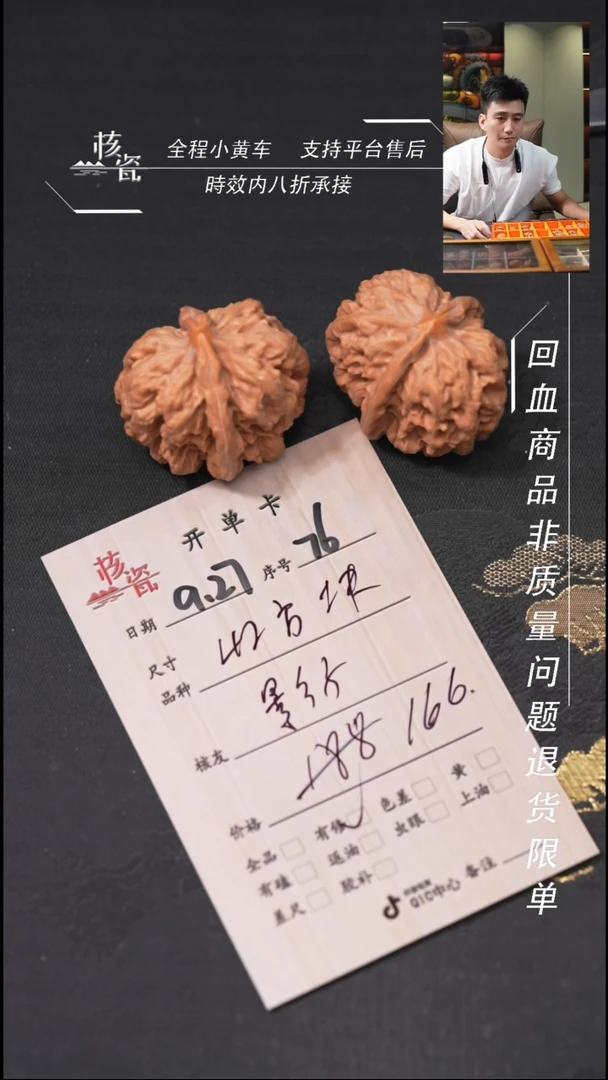 核瓷
全程小黄车 支持平台售后
時效内八折承接
回血商品非质量问题退货限单
核瓷
开单卡
日期 9.27 序号 76
尺寸
品种
核友
价格 188 166.
全品 有修 色差 黄
有磕 返油 虫眼 上油
差尺 胶补 QIC中心 备注